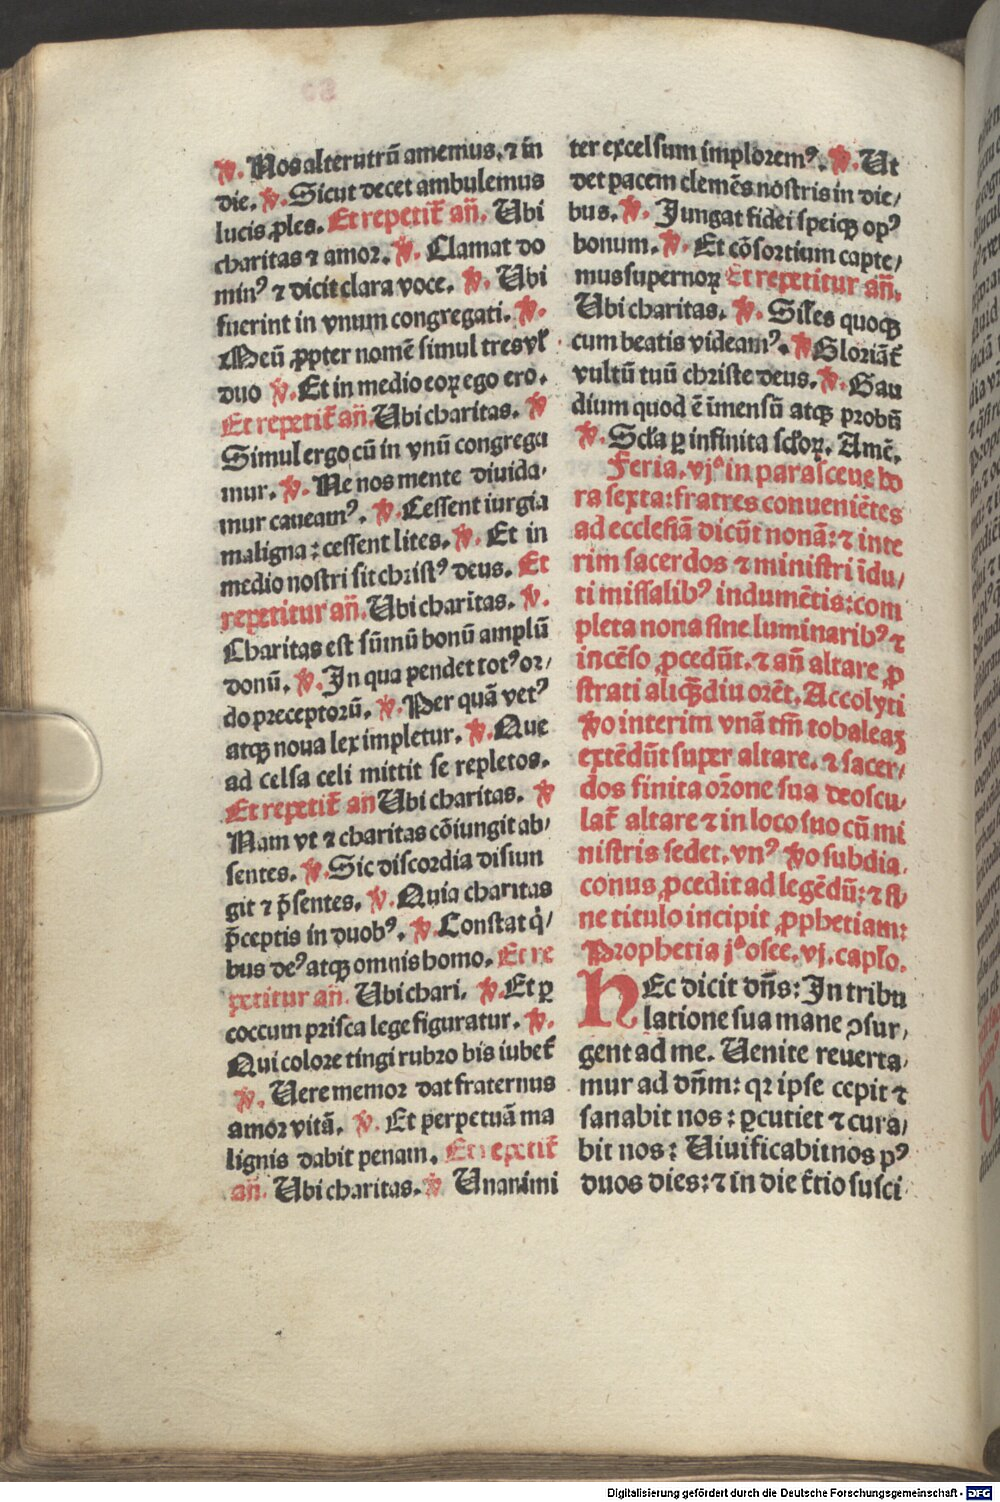 ℣. Nos alterutrū amemus. ⁊ in
die. ℣. Sicut decet ambulemus
lucis ꝓles. Et repetit᷑ añ. Ubi
charitas ⁊ amor. ℣. Clamat do
minꝰ ⁊ dicit clara voce. ℣. Ubi
fuerint in vnum congregati. ℣.
Meū ꝓpter nomē simul tres vl̓
duo ℣. Et in medio eoꝝ ego ero.
Et repetit᷑ añ. Ubi charitas. ℣
Simul ergo cū in vnū congrega
mur. ℣. Ne nos mente diuida-
mur caueamꝰ. ℣. Cessent iurgia
maligna: cessent lites. ℣. Et in
medio nostri sit christꝰ deus. Et
repetitur añ. Ubi charitas. ℣.
Charitas est sūmū bonū amplū
donū. ℣. In qua pendet totꝰ or/
do preceptorū. ℣. Per quā vetꝰ
atqꝫ noua lex impletur. ℣. Que
ad celsa celi mittit se repletos.
Et repetit᷑ añ Ubi charitas. ℣
Nam vt ⁊ charitas cōiungit ab/
sentes. ℣. Sic discordia disiun
git ⁊ p̄sentes. ℣. Quia charitas
p̄ceptis in duobꝰ. ℣. Constat q̇/
bus deꝰ atqꝫ omnis homo. Et re
petitur añ. Ubi chari. ℣. Et ꝑ
coccum prisca lege figuratur. ℣.
Qui colore tingi rubro bis iubet᷑
℣. Uere memor dat fraternus
amor vitā. ℣. Et perpetuā ma
lignis dabit penam. Et repetit᷑
añ. Ubi charitas. ℣ Unanimi
ter excelsum imploremꝰ. ℣. Ut
det pacem clemēs nostris in die/
bus. ℣. Jungat fidei speiqꝫ opꝰ
bonum. ℣. Et cōsortium capte/
mus supernoꝝ Et repetitur añ.
Ubi charitas. ℣. Sil̓es quoqꝫ
cum beatis videamꝰ. ℣ Gloriāt᷑
vultū tuū christe deus. ℣. Gau
dium quod ē īmensū atqꝫ probū
℣. Scl̓a ꝑ infinita scl̓oꝝ. Amē.
Feria. vjᵃ in parasceue ho
ra sexta: fratres conueniētes
ad ecclesiā dicūt nonā: ⁊ inte
rim sacerdos ⁊ ministri īdu/
ti missalibꝰ indumētis: com
pleta nona sine luminaribꝰ ⁊
incēso ꝓcedūt. ⁊ añ altare ꝓ
strati aliqꝫdiu orēt. Accolyti
v̊o interim vnā tm̄ tobaleaꝫ
extēdūt super altare. ⁊ sacer/
dos finita or̄one sua deoscu-
lat᷑ altare ⁊ in loco suo cū mi
nistris sedet. vnꝰ v̊o subdia-
conus ꝓcedit ad legēdū: ⁊ si-
ne titulo incipit ꝓphetiam:
Prophetia jᵃ osee. vj. caplo.
HEc dicit dn̄s: In tribu
latione sua mane ꝯsur/
gent ad me. Uenite reuerta/
mur ad dn̄m: qꝛ ipse cepit ⁊
sanabit nos: ꝑcutiet ⁊ cura/
bit nos: Uiuificabit nos pꝰ
duos dies: ⁊ in die t᷑tio susci
Digitalisierung gefördert durch die Deutsche Forschungsgemeinschaft - DFG